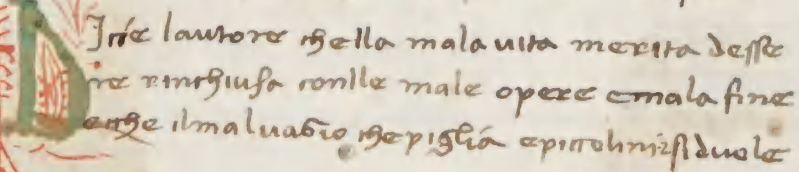 Dicie lautore chella mala uita merita desse
re rinchiusa conlle male opere emala fine
eche ilmaluagio che piglia epiccolini si duole